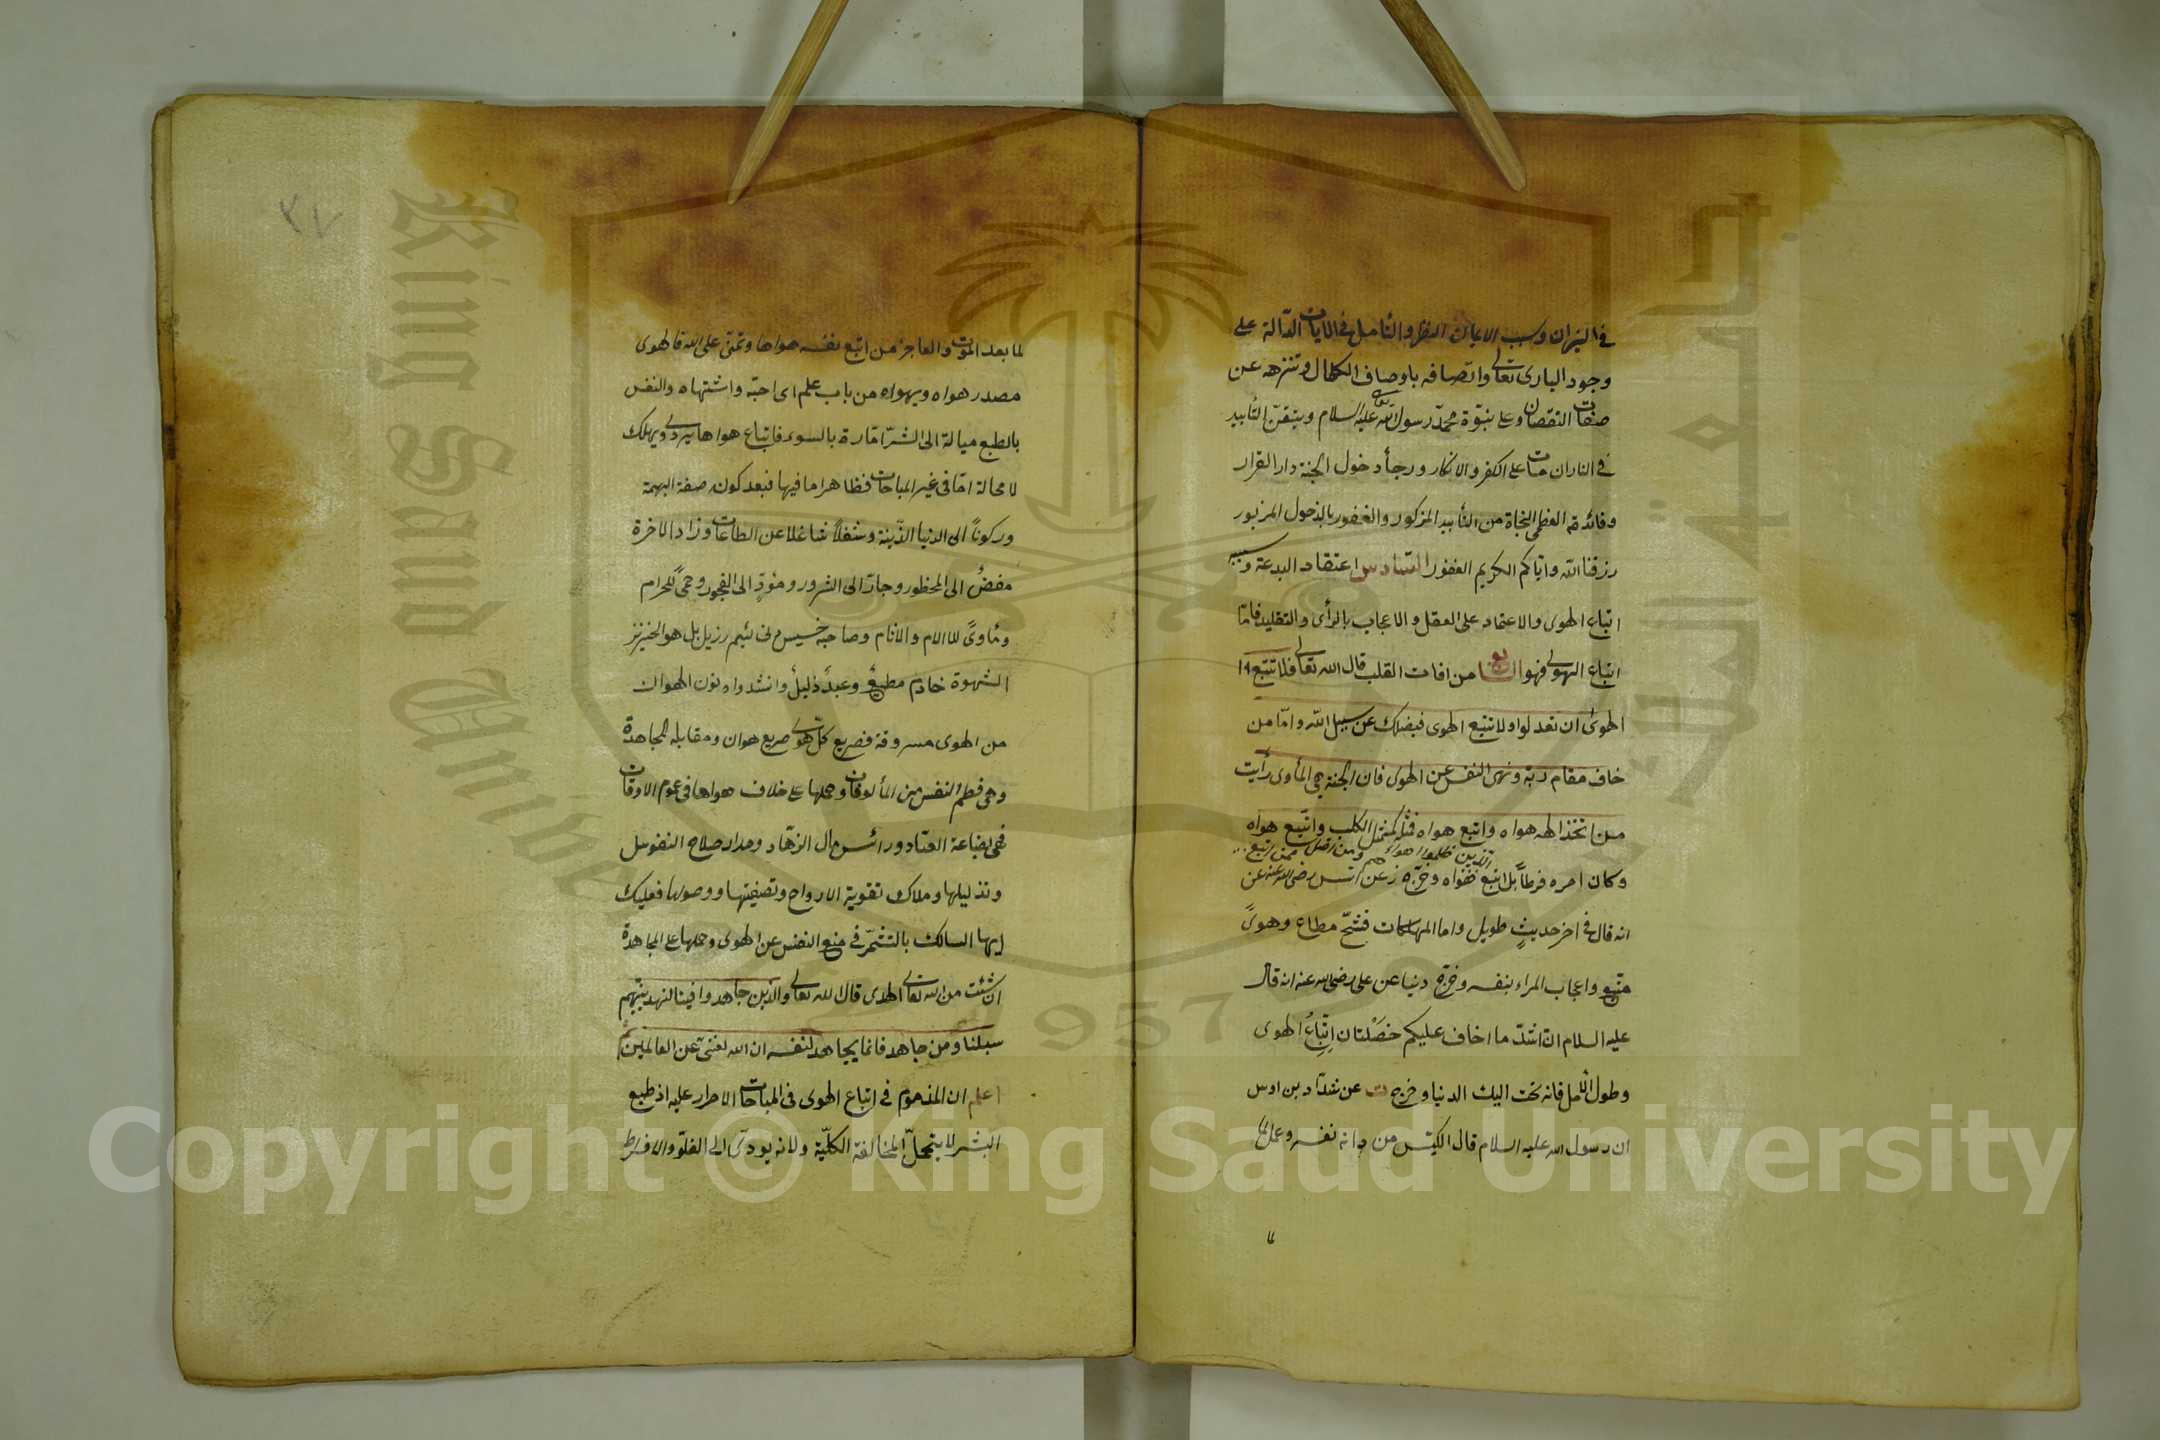 في النيران وسبب الايمان النظر والتأمل في الايات الدالة على
وجود البارى تعالى واتصافه باوصاف الكمال وتنزهه عن
صفات النقصان وعلى نبوة محمد رسول الله تعالى عليه السلام ويتيقن التأبيد
في النار ان مات على الكفر والانكار ورجأ دخول الجنة دار القرار
وفائدته العظمى النجاة من التأبيد المذكور والفوز بالدخول المزبور
رزقنا الله واياكم الكريم الغفور السادس اعتقاد البدعة وسببه
اتباع الهوى والاعتماد على العقل والاعجاب بالرأى والتقليد فاما
اتباع الهوى فهو السابع من افات القلب قال الله تعالى فلا تتبعوا
الهوى ان تعدلوا ولا تتبع الهوى فيضلك عن سبيل الله واما من
خاف مقام ربه ونهى النفس عن الهوى فان الجنة هي المأوى رأيت
من اتخذ الهه هواه واتبع هواه فمثله كمثل الكلب واتبع هواه
ومن اضل ممن اتبع
وكان امره فرطا بل اتبع الذين ظلموا اهواءهم وخرج ز عن انس رضى الله عنه عن
انه قال في اخر حديث طويل واما المهلكات فشح مطاع وهوى
متبع واعجاب المرء بنفسه وخرج دنيا عن على رضى الله عنه انه قال
عليه السلام ان اشد ما اخاف عليكم خصلتان اتباع الهوى
وطول الامل فانه يحبب اليك الدنيا وخرج ت عن شداد بن اوس
ان رسول الله عليه السلام قال الكيس من دانه نفسه وعمل لما
لما
٣٧
لما بعد الموت والعاجز من اتبع نفسه هواها وتمنى على الله فالهوى
مصدر هواه ويهواه من باب علم اى احبه واشتهاه والنفس
بالطبع ميالة الى الشر امارة بالسوء فاتباع هواها يردى ويهلك
لا محالة اما في غير المباحات فظاهر اما فيها فبعد كونه صفة البهيمة
وركونا الى الدنيا الدنية وشغلا شاغلا عن الطاعات وزاد الاخرة
مفض الى المحظور وجار الى الشرور ومؤد الى الفجور وحمى للحرام
ومأوى للالام والانام وصاحبه خسيس دنى لئيم رزيل بل هو الخنزير
الشهوة خادم مطيع وعبد ذليل وانشدوا نون الهوان
من الهوى مسروقة فصريع كل هوى صريع هوان ومقابله المجاهدة
وهى فطم النفس من المألوفات وحملها على خلاف هواها في عموم الاوقات
فهى بضاعة العباد ورأس مال الزهاد ومدار صلاح النفوس
وتذليلها وملاك تقوية الارواح وتصفيتها ووصولها فعليك
ايها السالك بالتشمر في منع النفس عن الهوى وحملها على المجاهدة
ان شئت من الله تعالى الهدى قال الله تعالى والذين جاهدوا فينا لنهدينهم
سبلنا ومن جاهد فانما يجاهد لنفسه ان الله لغنى عن العالمين ثم
اعلم ان المذموم في اتباع الهوى في المباحات الاصرار عليه اذ طبع
البشر لا يتحمل المخالفة الكلية ولانه يودى الى الغلو والافراط